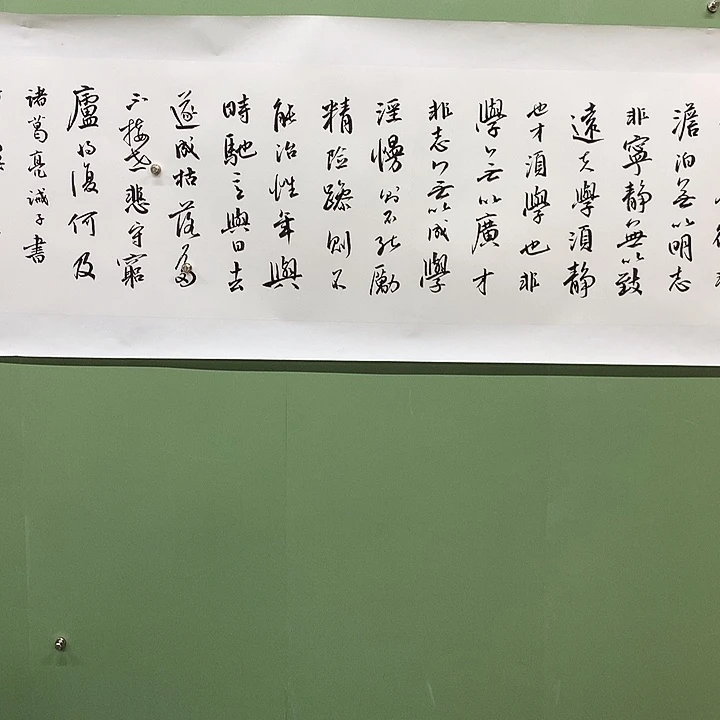 澹泊無以明志
非寧静無以致
遠夫學須静
也才須學也非
學無以廣才
非志無以成學
淫慢則不能勵
精险躁則不
能治性年與
時馳意與日去
遂成枯落多
不接世悲守窮
廬将復何及
諸葛亮誡子書